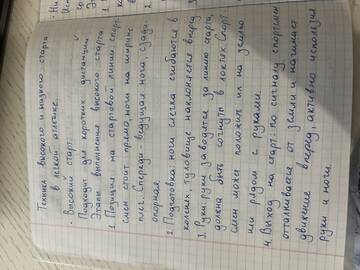 Техника высокого и низкого старта
в легкой атлетике.
• Высокий старт.
Подходит для коротких дистанций
Этапы выполнения высокого старта:
1. Позиция на стартовой линии: спорт-
смен стоит прямо, ноги на ширине
плеч. Спереди ведущая нога, сзади-
опорная.
2. Подготовка ноги слегка сгибаются в
коленях, туловище наклоняется вперед
3. Руки: руки заводятся за линию старта,
должна быть согнуты в локтях. Спорт
смен может положить их на землю
или рядом с руками.
4. Выход на старт: по сигналу спортсмен
отталкивается от земли и начинает
движение вперед, активно используя
руки и ноги.